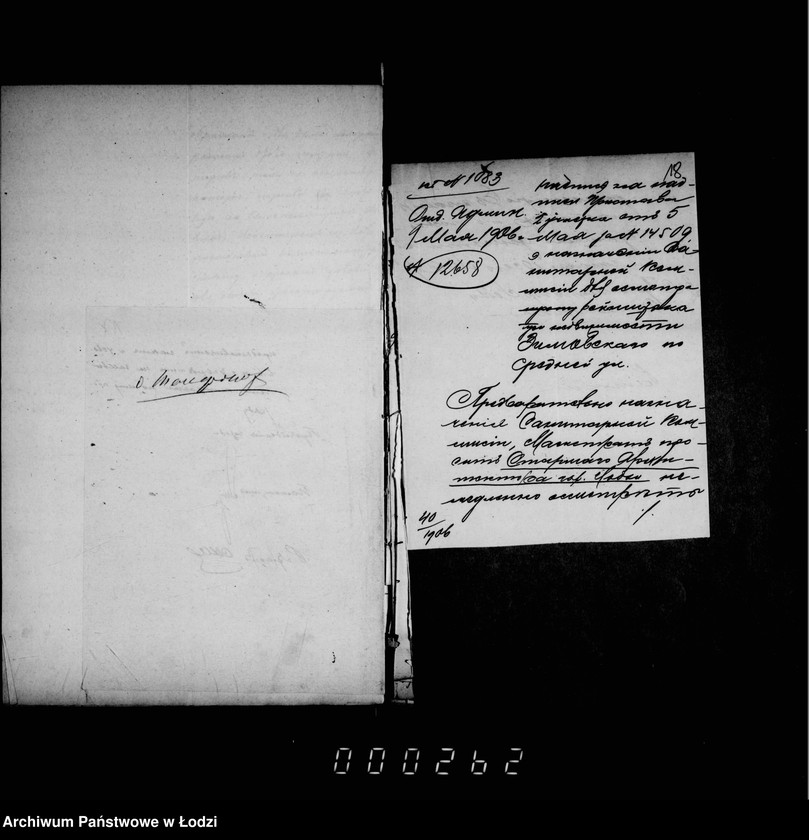 18
№ 1083
Отд. Админ.
9 Мая 1906.
№ 12658
надпись на над-
писи Пристава
участка отъ 5
Мая за № 14509
о назначеніи Са-
нитарной Ком-
миссіи для осмотра
недвижимости
Зимовскаго по
Средней ул.
Предварительно назна-
ченія Санитарной Ком-
миссіи, Магистратъ про-
ситъ Старшаго Архи-
тектора гор. Лодзи не-
медленно осмотрѣть
./.
40
1906
000262
Archiwum Państwowe w Łodzi